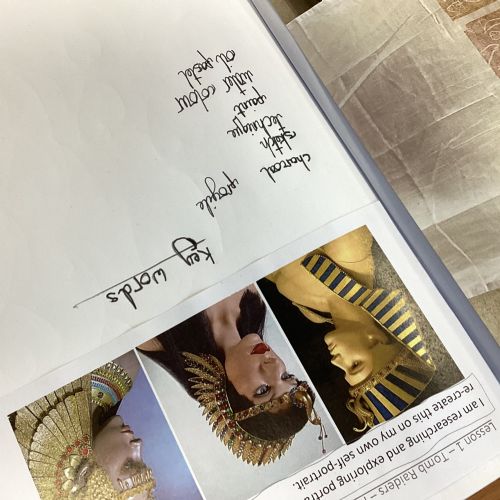 Lesson 1 – Tomb Raiders
I am researching and exploring
re-create this on my own self-portrait.
key words
charcoal profile
sketch
technique
paint
water colour
oil pastel